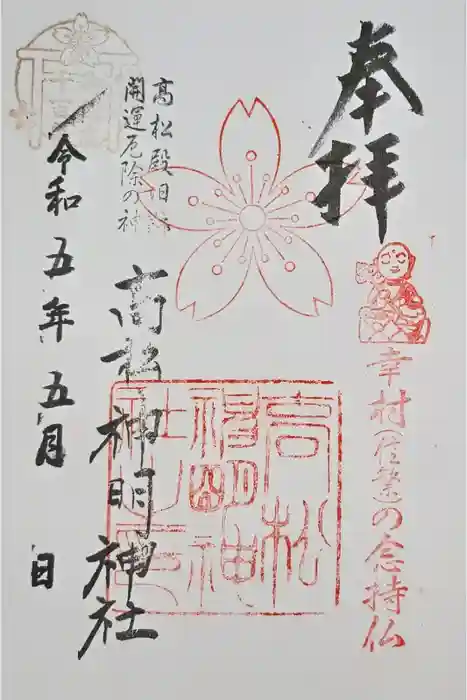 奉拝
幸村(信繁)の念持仏
高松神明神社
高松
神明神
社之印
高松殿旧跡
開運厄除の神
令和五年五月 日